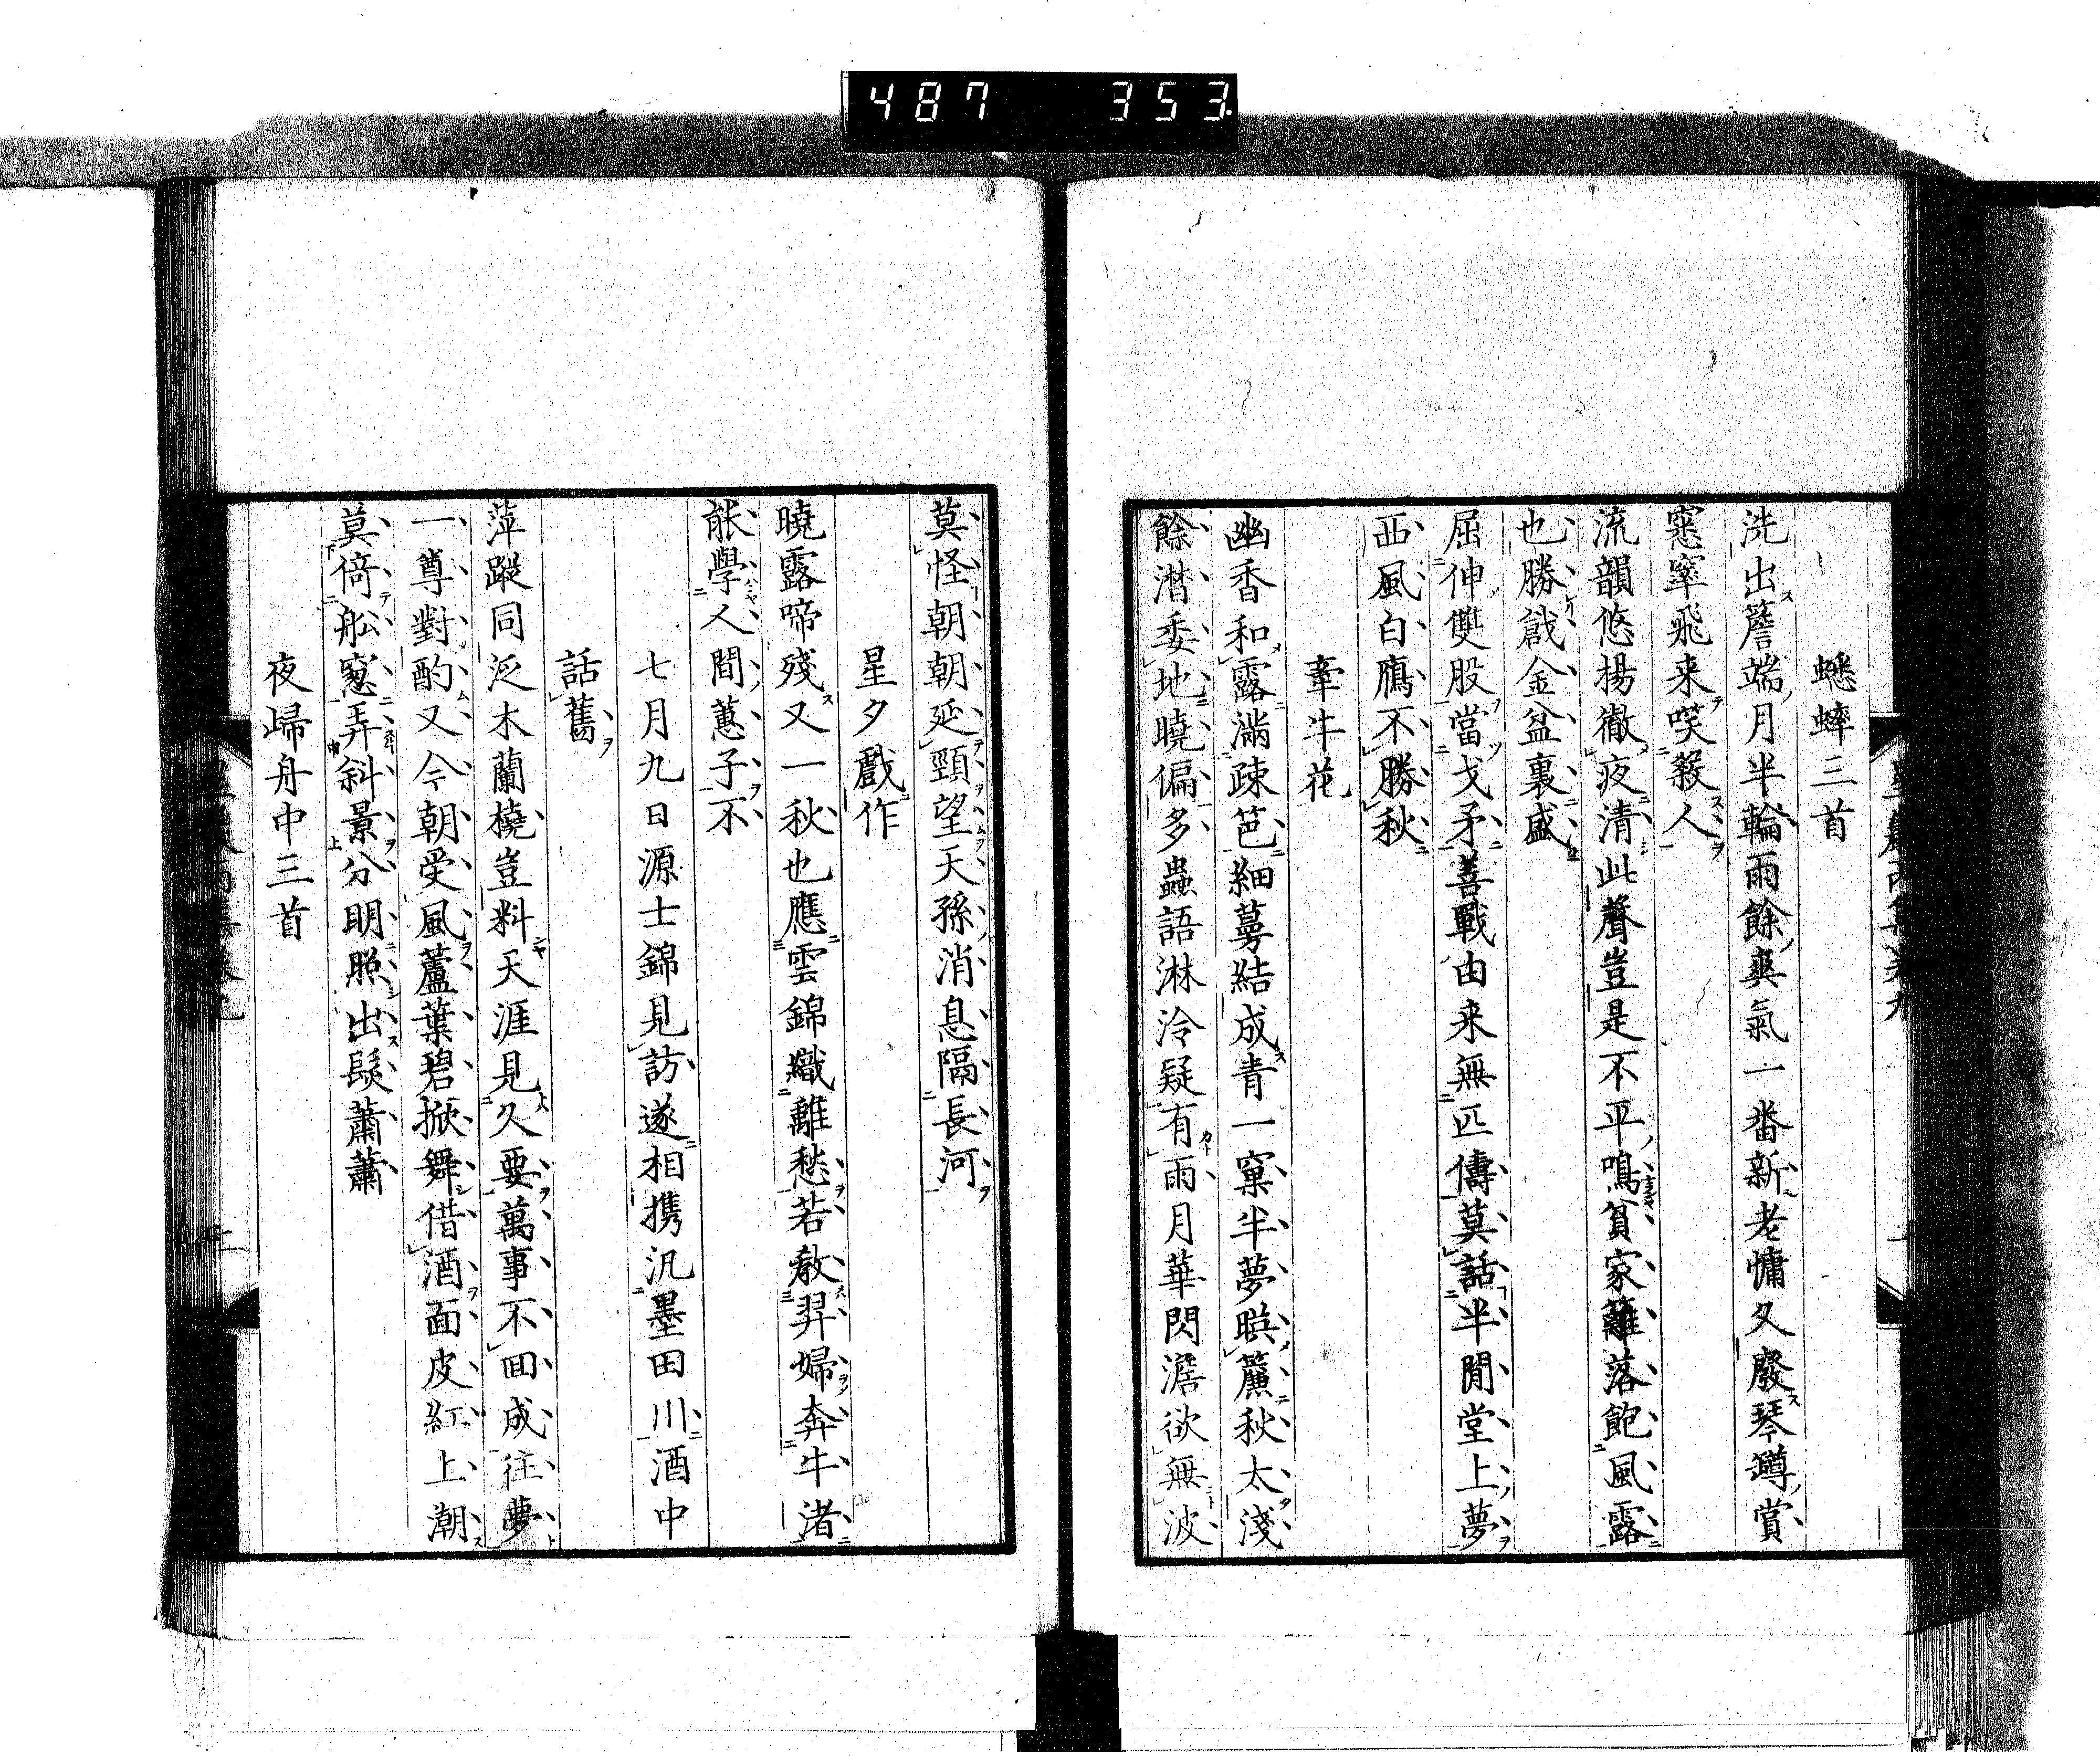 487 353
蟋蟀三首
洗出簷端月半輪雨餘爽氣一番新老慵久廢琴罇賞
窓窣飛来咲殺人
流韻悠揚徹夜清此聲豈是不平鳴貧家籬落飽風露
也勝戧金盆裏盛
屈伸雙股當戈矛善戰由来無匹儔莫話半閒堂上夢
西風白鴈不勝秋
牽牛花
幽香和露滿疎笆細蔓結成青一窠半夢暎簾秋太淺
餘潜委地曉偏多蟲語淋泠疑有雨月華閃澹欲無波
莫怪朝朝延頸望天孫消息隔長河
星夕戲作
曉露啼殘又一秋也應雲錦織離愁若教羿婦奔牛渚
能學人間蕙子不
七月九日源士錦見訪遂相携汎墨田川酒中
話舊
萍蹤同泛木蘭橈豈料天涯見久要萬事不回成往夢
一尊對酌又今朝受風蘆葉碧掀舞借酒面皮紅上潮
莫倚舩窓弄斜景分明照出髮蕭蕭
夜歸舟中三首